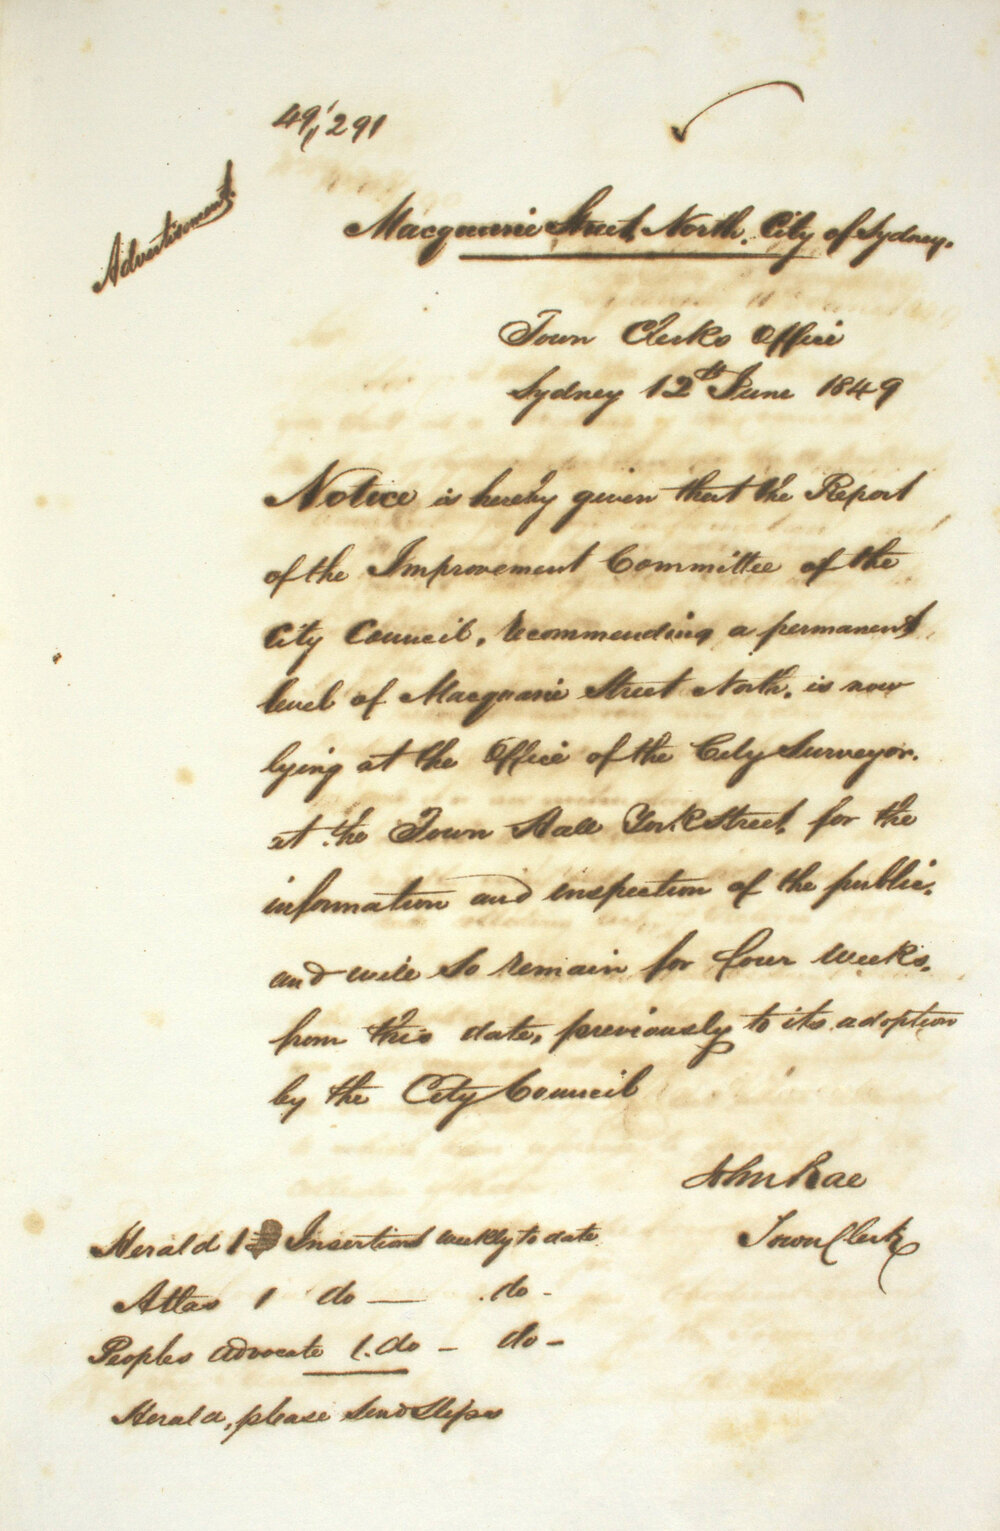 49/291
Advertisement.
Macquarie Street North. City of Sydney.
Town Clerks Office
Sydney 12th June 1849
Notice is hereby given that the Report
of the Improvement Committee of the
City Council, recommending a permanent
level of Macquarie Street North, is now
lying at the Office of the City Surveyor.
at the Town Hall York Street, for the
information and inspection of the public.
and will so remain for four weeks,
from this date, previously to its adoption
by the City Council
John Rae
Town Clerk
Herald 1 Insertion weekly to date
Atlas 1 do — do -
Peoples advocate 1. do - do -
Herald, please send Slips